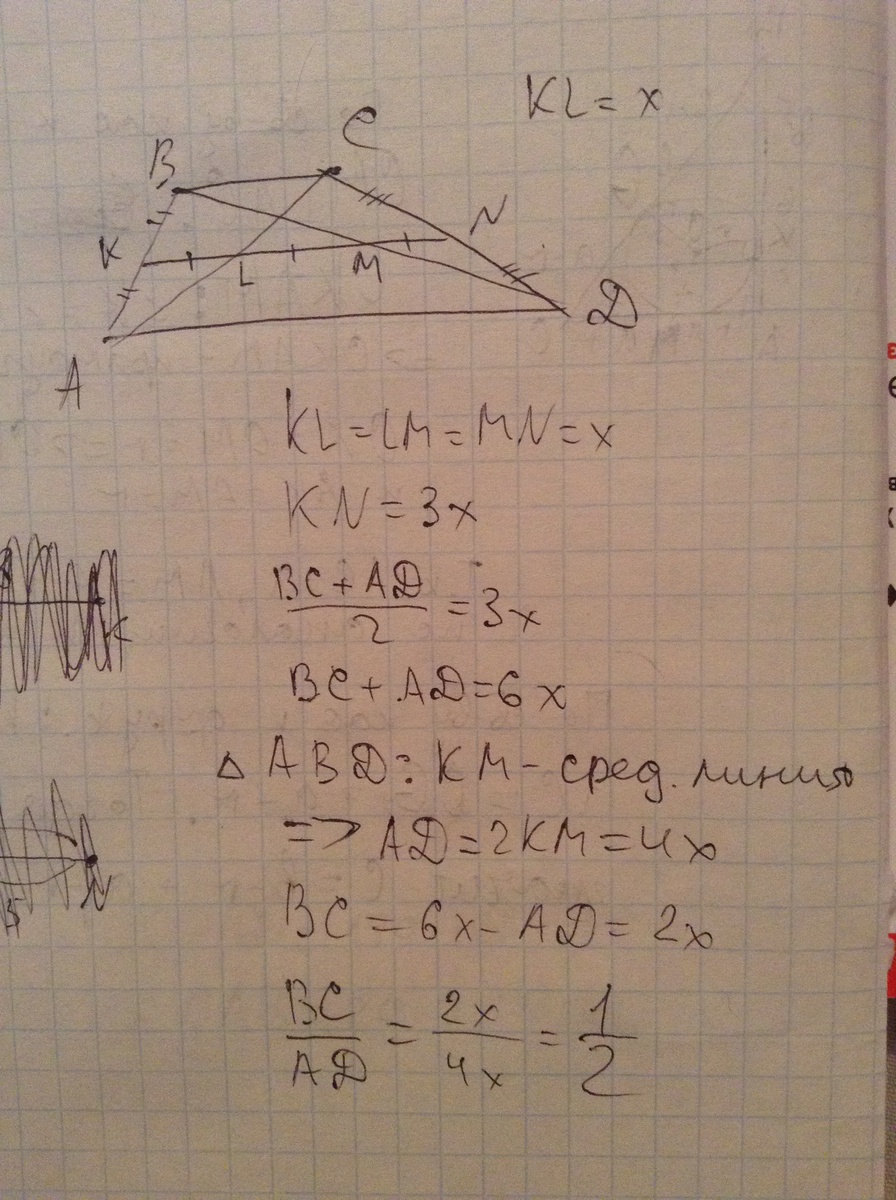 KL = x
C
B
N
K
L
M
D
A
KL = LM = MN = x
KN = 3x
(BC + AD)/2 = 3x
BC + AD = 6x
Δ ABD: KM - сред. линия
=> AD = 2KM = 4x
BC = 6x - AD = 2x
BC/AD = 2x/4x = 1/2